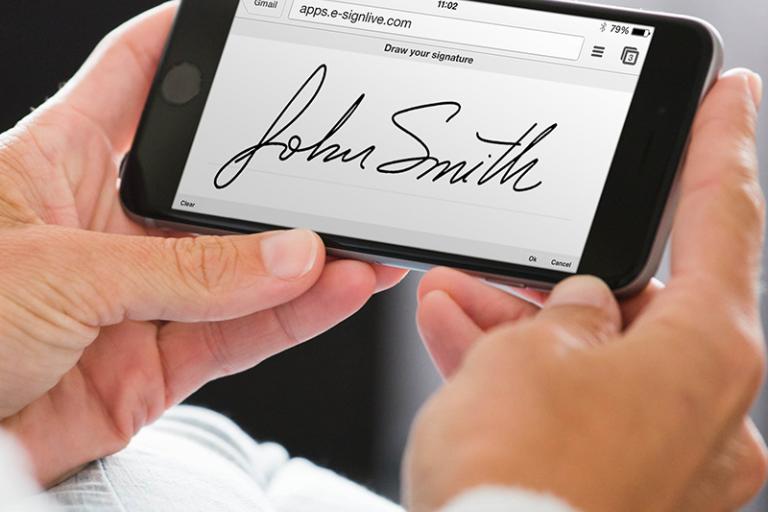 11:02
79%
Gmail
apps.e-signlive.com
3
Draw your signature
John Smith
Clear
Ok
Cancel